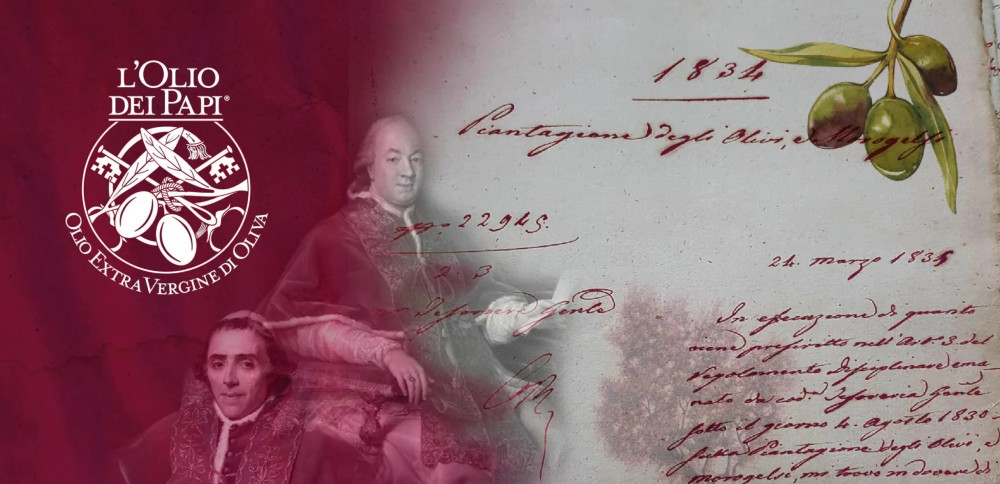 L'OLIO
DEI PAPI®
OLIO EXTRA VERGINE DI OLIVA
1834
Piantagione degli Olivi, e Morogelsi
22945.
2. 3
Tesoriere Genle
24. Marzo 1835
In esecuzione di quanto
viene prescritto nell'Arto 3. del
Regolamento Disciplinare ema=
nato da cod.a Tesoreria Genle
sotto il giorno 4. Agosto 1830.
sulla Piantagione degli Olivi, e
morogelsi, mi trovo in dovere di